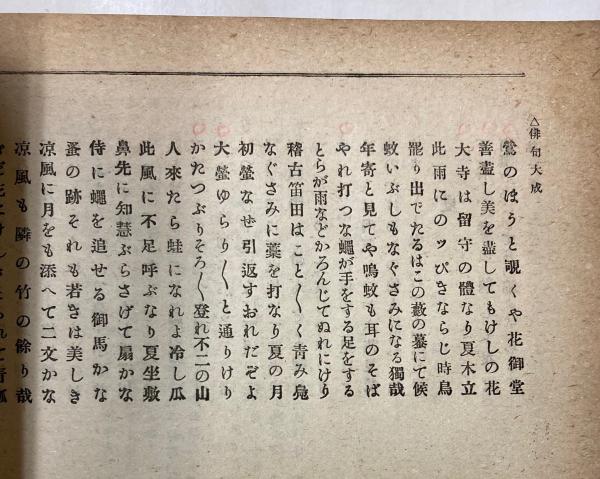 △俳句大成
鶯のほうと覗くや花御堂
善盡し美を盡してもけしの花
大寺は留守の體なり夏木立
此雨にのッぴきならじ時鳥
罷り出でたるはこの藪の蟇にて候
蚊いぶしもなぐさみになる獨哉
年寄と見てや鳴蚊も耳のそば
やれ打つな蠅が手をする足をする
とらが雨などかろんじてぬれにけり
稽古笛田はこと〲く青み鳬
なぐさみに藁を打なり夏の月
初螢なぜ引返すおれだぞよ
大螢ゆらり〱と通りけり
かたつぶりそろ〱登れ不二の山
人來たら蛙になれよ冷し瓜
此風に不足呼ぶなり夏坐敷
鼻先に知慧ぶらさげて扇かな
侍に蠅を追せる御馬かな
蚤の跡それも若きは美しき
凉風に月をも添へて二文かな
凉風も隣の竹の餘り哉